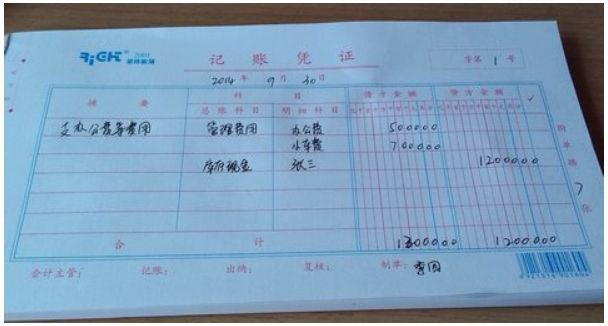 2001
记账凭证
字第 1 号
2014 年 9 月 30 日
摘要 科目 借方金额 贷方金额 ✓
总账科目 明细科目
支办公费等费用 管理费用 办公费 500000
小车费 700000
库存现金 张三 1200000
附单据 7 张
合计 1300000 1200000
会计主管: 记账: 出纳: 复核: 制单: